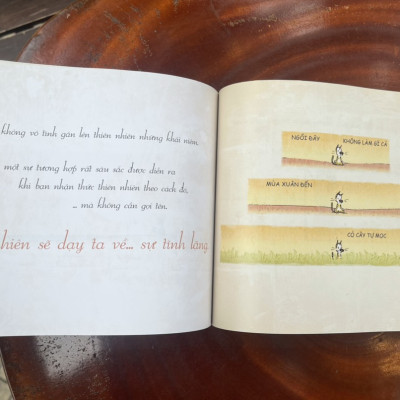 không vô tình gán lên thiên nhiên những khái niệm,
một sự tương hợp rất sâu sắc được diễn ra
khi bạn nhận thức thiên nhiên theo cách đó,
... mà không cần gọi tên.
nhiên sẽ dạy ta về... sự tĩnh lặng
NGỒI ĐÂY
KHÔNG LÀM GÌ CẢ
MÙA XUÂN ĐẾN
CỎ CÂY TỰ MỌC